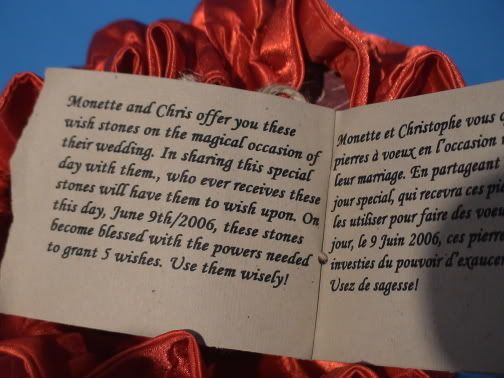 Monette and Chris offer you these
wish stones on the magical occasion of
their wedding. In sharing this special
day with them., who ever receives these
stones will have them to wish upon. On
this day, June 9th/2006, these stones
become blessed with the powers needed
to grant 5 wishes. Use them wisely!
Monette et Christophe vous
pierres à voeux en l'occasion
leur mariage. En partageant
jour special, qui recevra ces
les utiliser pour faire des
jour, le 9 Juin 2006, ces
investies du pouvoir
Usez de sagesse!